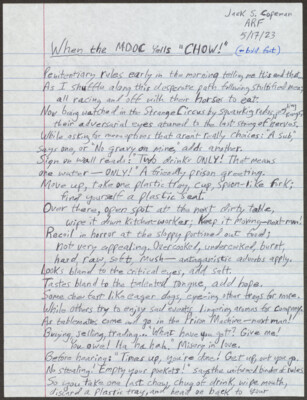 Jack S. Copeman
ARF
5/17/23
When the MDOC Yells "CHOW!"
Penitentiary rules early in the morning telling me this and that,
As I shuffle along this desperate path following stultified men;
all racing and off with their horses to eat.
Now being watched in the Strange Circus by squawking radio,
their adversarial eyes attuned to the last thing of
While asking for exemptions that aren't really choices: 'A sub,'
says one, or 'No gravy on mine,' adds another.
Sign on wall reads: 'Two drinks ONLY! That means
one water — ONLY!' A friendly prison greeting.
Move up, take one plastic tray, cup, spoon-like fork;
find yourself a plastic seat.
Over there, open spot at the most dirty table,
wipe it down kitchen worker; Keep it moving
Recoil in horror at the sloppy portioned out food;
Not very appealing. Overcooked, undercooked, burnt,
hard, raw, soft, mush— antagonistic adverbs apply.
Looks bland to the critical eyes, add salt.
Tastes bland to the talented tongue, add hope.
Some chow fast like eager dogs, opening other trays for more.
While others try to enjoy such events, lingering
As tablemates come and go in the Prison Machine
Buying, selling, trading.. What have you got? Give me!
You owe! Ha ha hah! Misery in love.
Before hearing: "Times up, you're done! Get up, let's go.
No stealing! Empty your pockets!" says the uniformed
So you take one last chew, chug of drink, wipe mouth,
discard a plastic tray, and head on back to your